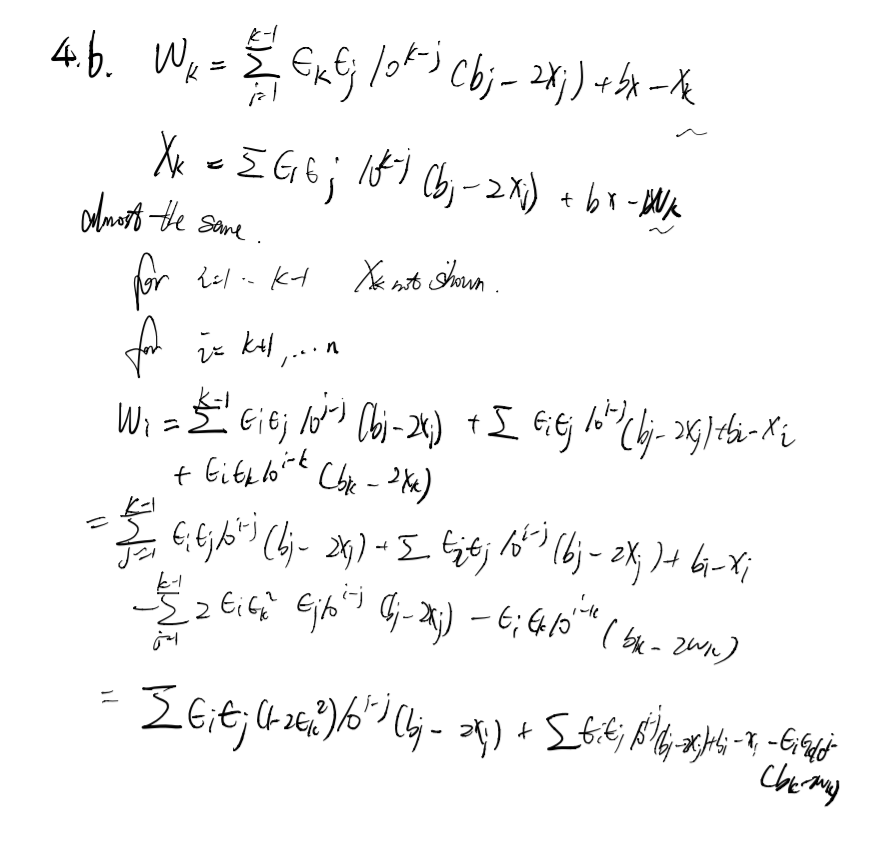 4.b. W_k = \sum_{j=1}^{k-1} ϵ_k ϵ_j 10^{k-j} (b_j - 2x_j) + b_k - x_k
X_k = Σ ϵ_i ϵ_j 10^{k-j} (b_j - 2x_j) + b_k - W_k
almost the same.
for i=1 .. k-1 X_k not shown.
for i = k+1, ... n
W_i = \sum^{k-1} ϵ_i ϵ_j 10^{i-j} (b_j - 2x_j) + Σ ϵ_i ϵ_j 10^{i-j} (b_j - 2x_j) + b_i - x_i
+ ϵ_i ϵ_k 10^{i-k} (b_k - 2x_k)
= \sum_{j=1}^{k-1} ϵ_i ϵ_j 10^{i-j} (b_j - 2x_j) + Σ ϵ_i ϵ_j 10^{i-j} (b_j - 2x_j) + b_i - x_i
- \sum_{j=1}^{k-1} 2 ϵ_i ϵ_k^2 ϵ_j 10^{i-j} (b_j - 2x_j) - ϵ_i ϵ_k 10^{i-k} (b_k - 2w_k)
= Σ ϵ_i ϵ_j (1-2ϵ_k^2) 10^{i-j} (b_j - 2x_j) + Σ ϵ_i ϵ_j 10^{i-j} (b_j - 2x_j) + b_i - x_i - ϵ_i
(b_k - 2w_k)